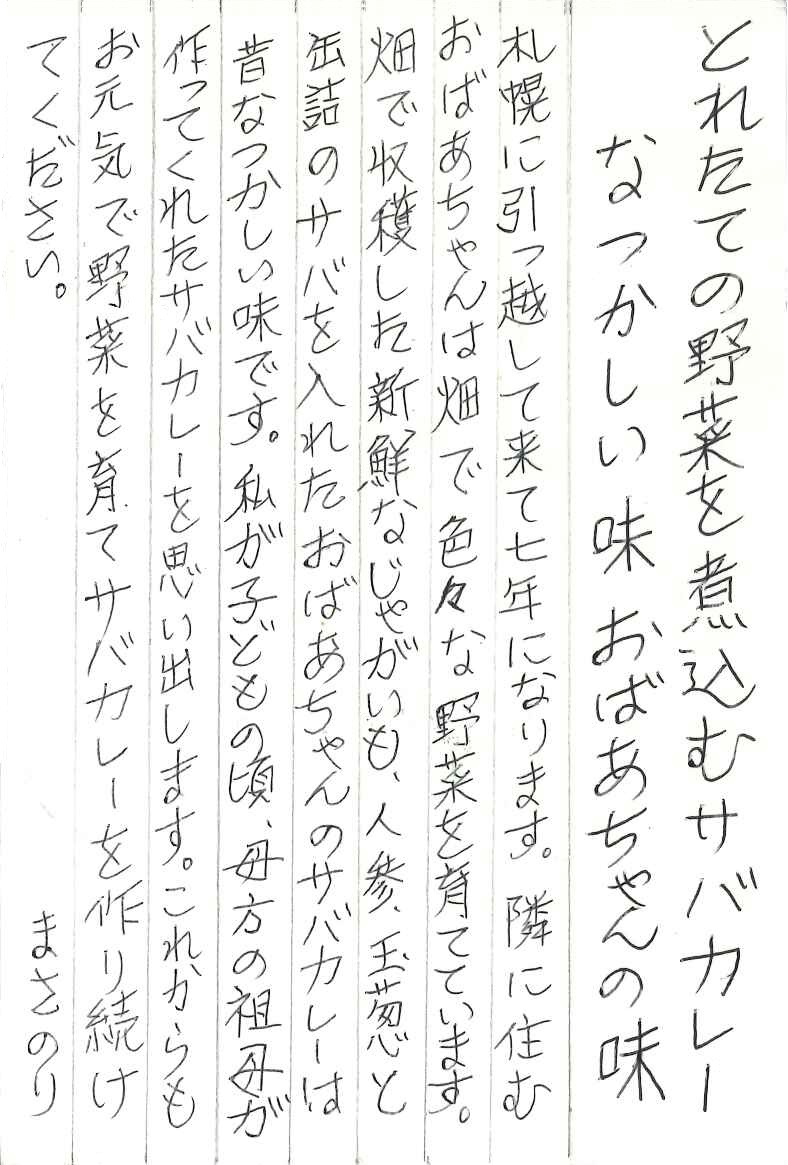 とれたての野菜を煮込むサバカレー
なつかしい味 おばあちゃんの味
札幌に引っ越して来て七年になります。隣に住む
おばあちゃんは畑で色々な野菜を育てています。
畑で収穫した新鮮なじゃがいも、人参、玉葱と
缶詰のサバを入れたおばあちゃんのサバカレーは
昔なつかしい味です。私が子どもの頃、母方の祖母が
作ってくれたサバカレーを思い出します。これからも
お元気で野菜を育てサバカレーを作り続け
てください。
まさのり